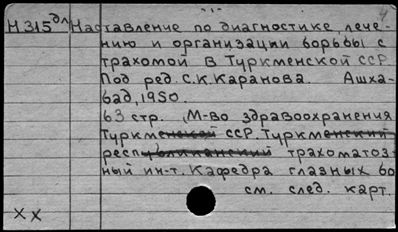 -1-
4
Н315дл Наставление по диагностике, лече-
нию и организации борьбы с
трахомой в Туркменской ССР.
Под ред. С.К. Каранова. Ашха-
бад, 1950.
63 стр. (М-во здравоохранения
Туркменской ССР. Туркменский
республиканский трахоматоз-
ный ин-т. Кафедра глазных бо
см. след. карт.
XX